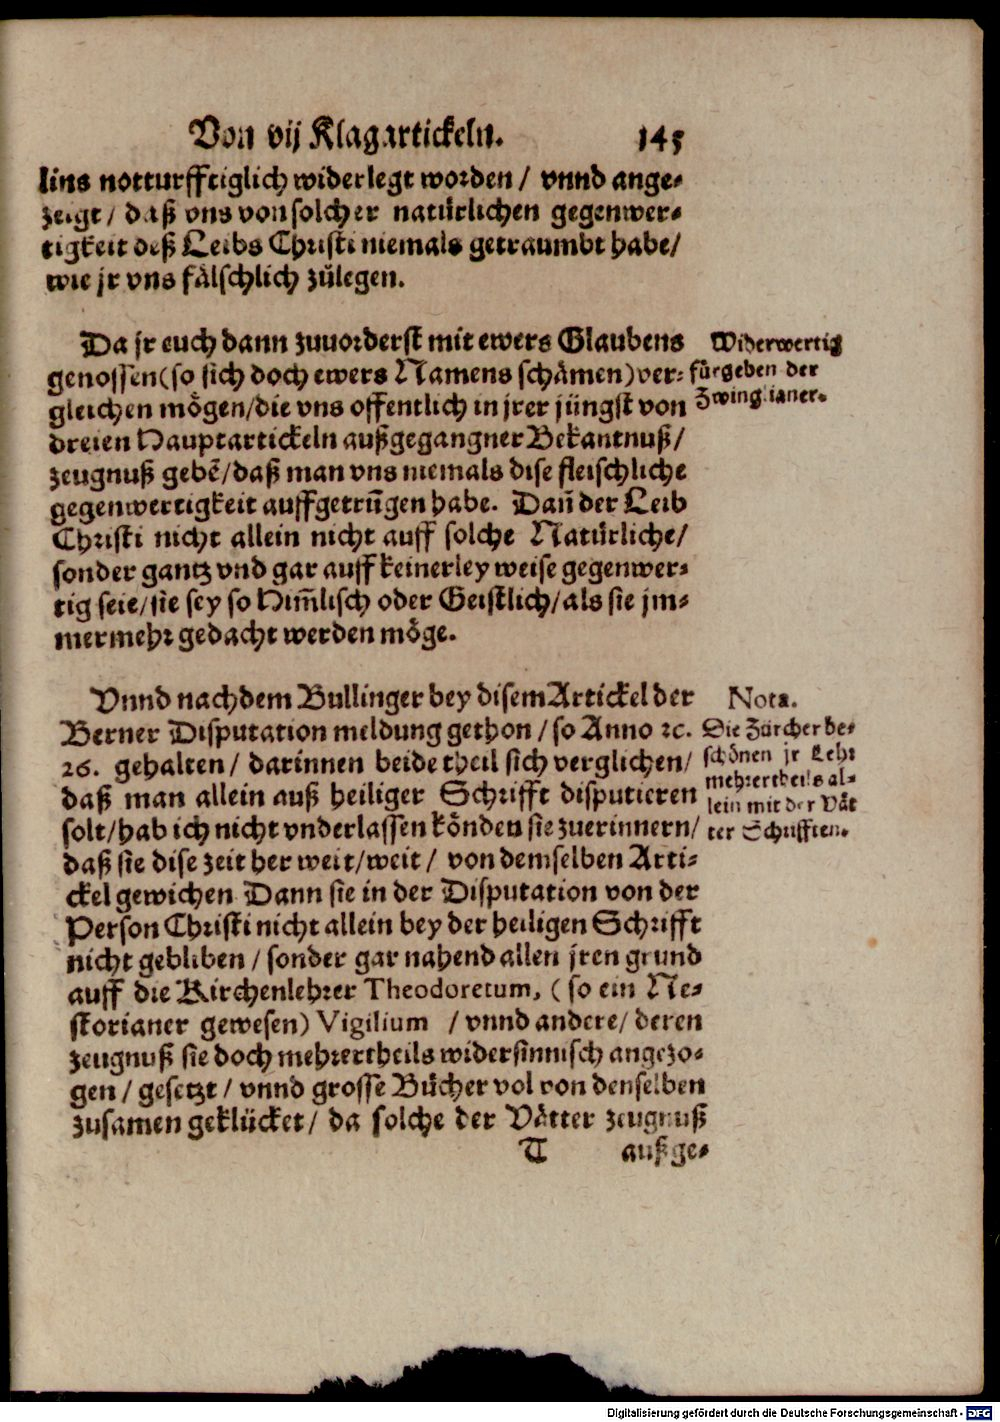 Von vij Klagartickeln. 145
lins notturfftiglich widerlegt worden / vnnd ange-
zeigt / daß vns von solcher natürlichen gegenwer-
tigkeit deß Leibs Christi niemals getraumbt habe /
wie jr vns fälschlich zůlegen.
Da jr euch dann zuuorderst mit ewers Glaubens
genossen (so sich doch ewers Namens schämen) ver-
gleichen mögen / die vns offentlich in jrer jüngst von
dreien Hauptartickeln außgegangner Bekantnuß /
zeugnuß gebẽ / daß man vns niemals dise fleischliche
gegenwertigkeit auffgetrũgen habe. Dañ der Leib
Christi nicht allein nicht auff solche Natürliche /
sonder gantz vnd gar auff keinerley weise gegenwer-
tig seie / sie sey so Him̃lisch oder Geistlich / als sie jm-
mermehr gedacht werden möge.
Widerwertig
fürgeben der
Zwinglianer.
Vnnd nachdem Bullinger bey disem Artickel der
Berner Disputation meldung gethon / so Anno ꝛc.
26. gehalten / darinnen beide theil sich verglichen /
daß man allein auß heiliger Schrifft disputieren
solt / hab ich nicht vnderlassen könden sie zuerinnern /
daß sie dise zeit her weit / weit / von demselben Arti-
ckel gewichen Dann sie in der Disputation von der
Person Christi nicht allein bey der heiligen Schrifft
nicht gebliben / sonder gar nahend allen jren grund
auff die Kirchenlehrer Theodoretum, (so ein Ne-
storianer gewesen) Vigilium / vnnd andere / deren
zeugnuß sie doch mehrertheils widersinnisch angezo-
gen / gesetzt / vnnd grosse Bücher vol von denselben
zusamen geklücket / da solche der Vätter zeugnuß
Nota.
Die Zürcher be-
schönen jr Lehr
mehrertheils al-
lein mit der Vät
ter Schrifften.
T außge-
Digitalisierung gefördert durch die Deutsche Forschungsgemeinschaft - DFG